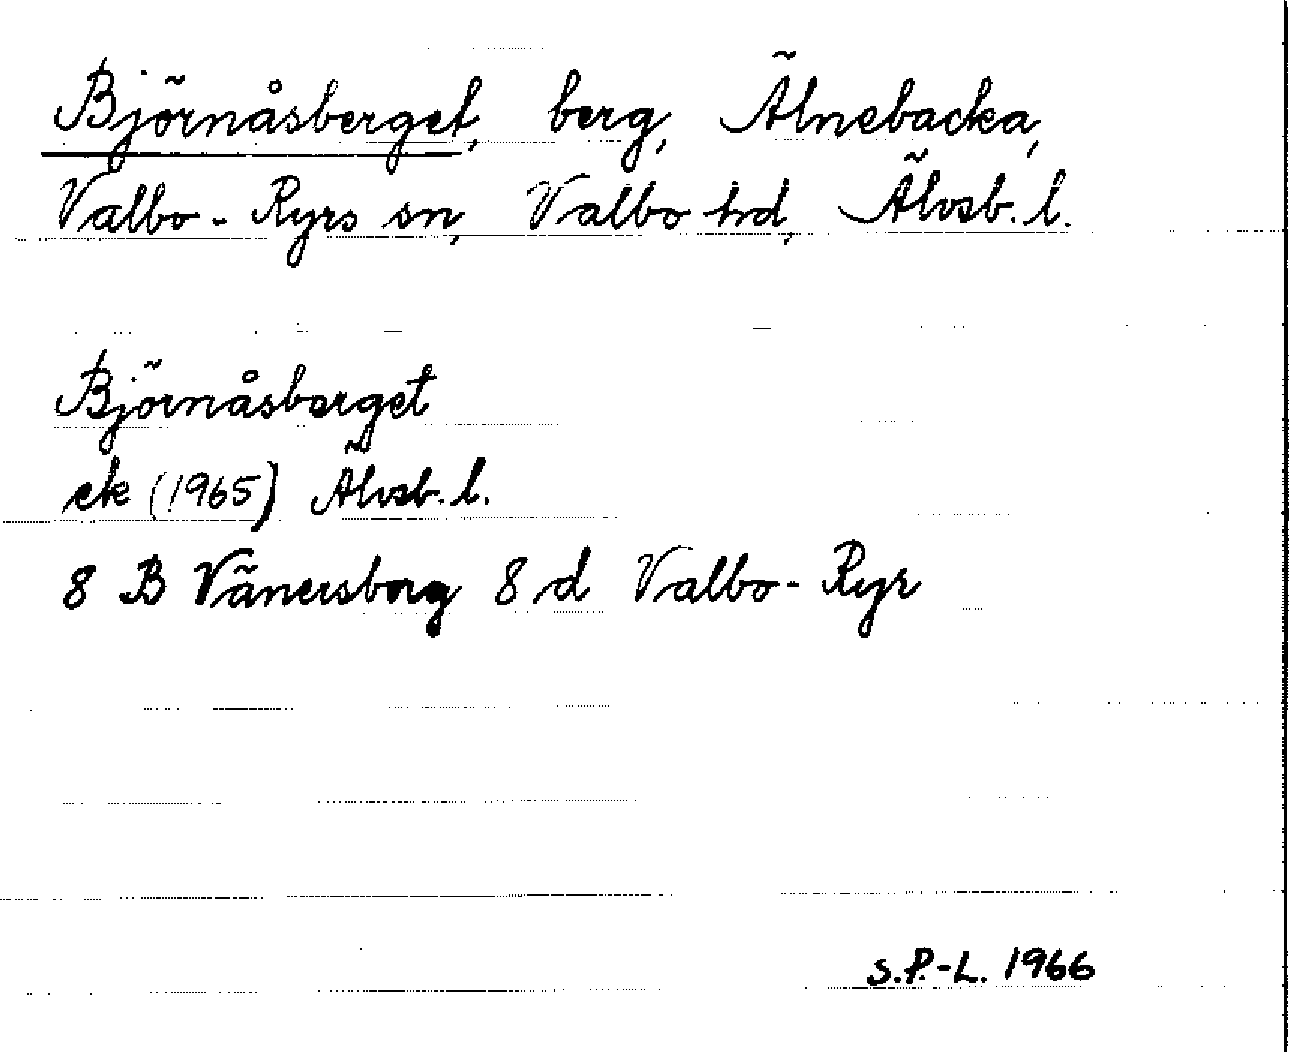 Björnåsberget, berg, Älnebacka,
Valbo-Ryrs sn, Valbo hd, Älvsb. l.
Björnåsberget
ek (1965) Älvsb. l.
8 B Vänersborg 8 d Valbo-Ryr
S.P.-L. 1966